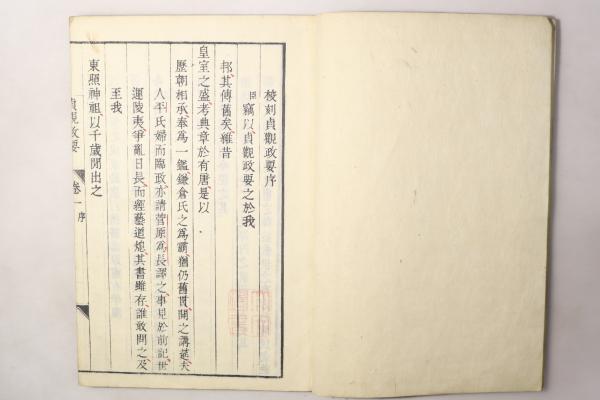 校刻貞觀政要序
臣竊以貞觀政要之於我
邦其傳舊矣維昔
皇室之盛考典章於有唐是以
歷朝相承奉為一鑑鎌倉氏之為霸猶仍舊貫開之講筵夫
人平氏婦而臨政亦請菅原為長譯之事見於前記世
運陵夷爭亂日長而經藝道熄其書雖存誰敢問之及
至我
東照神祖以千歲開出之
貞觀政要 卷一 序